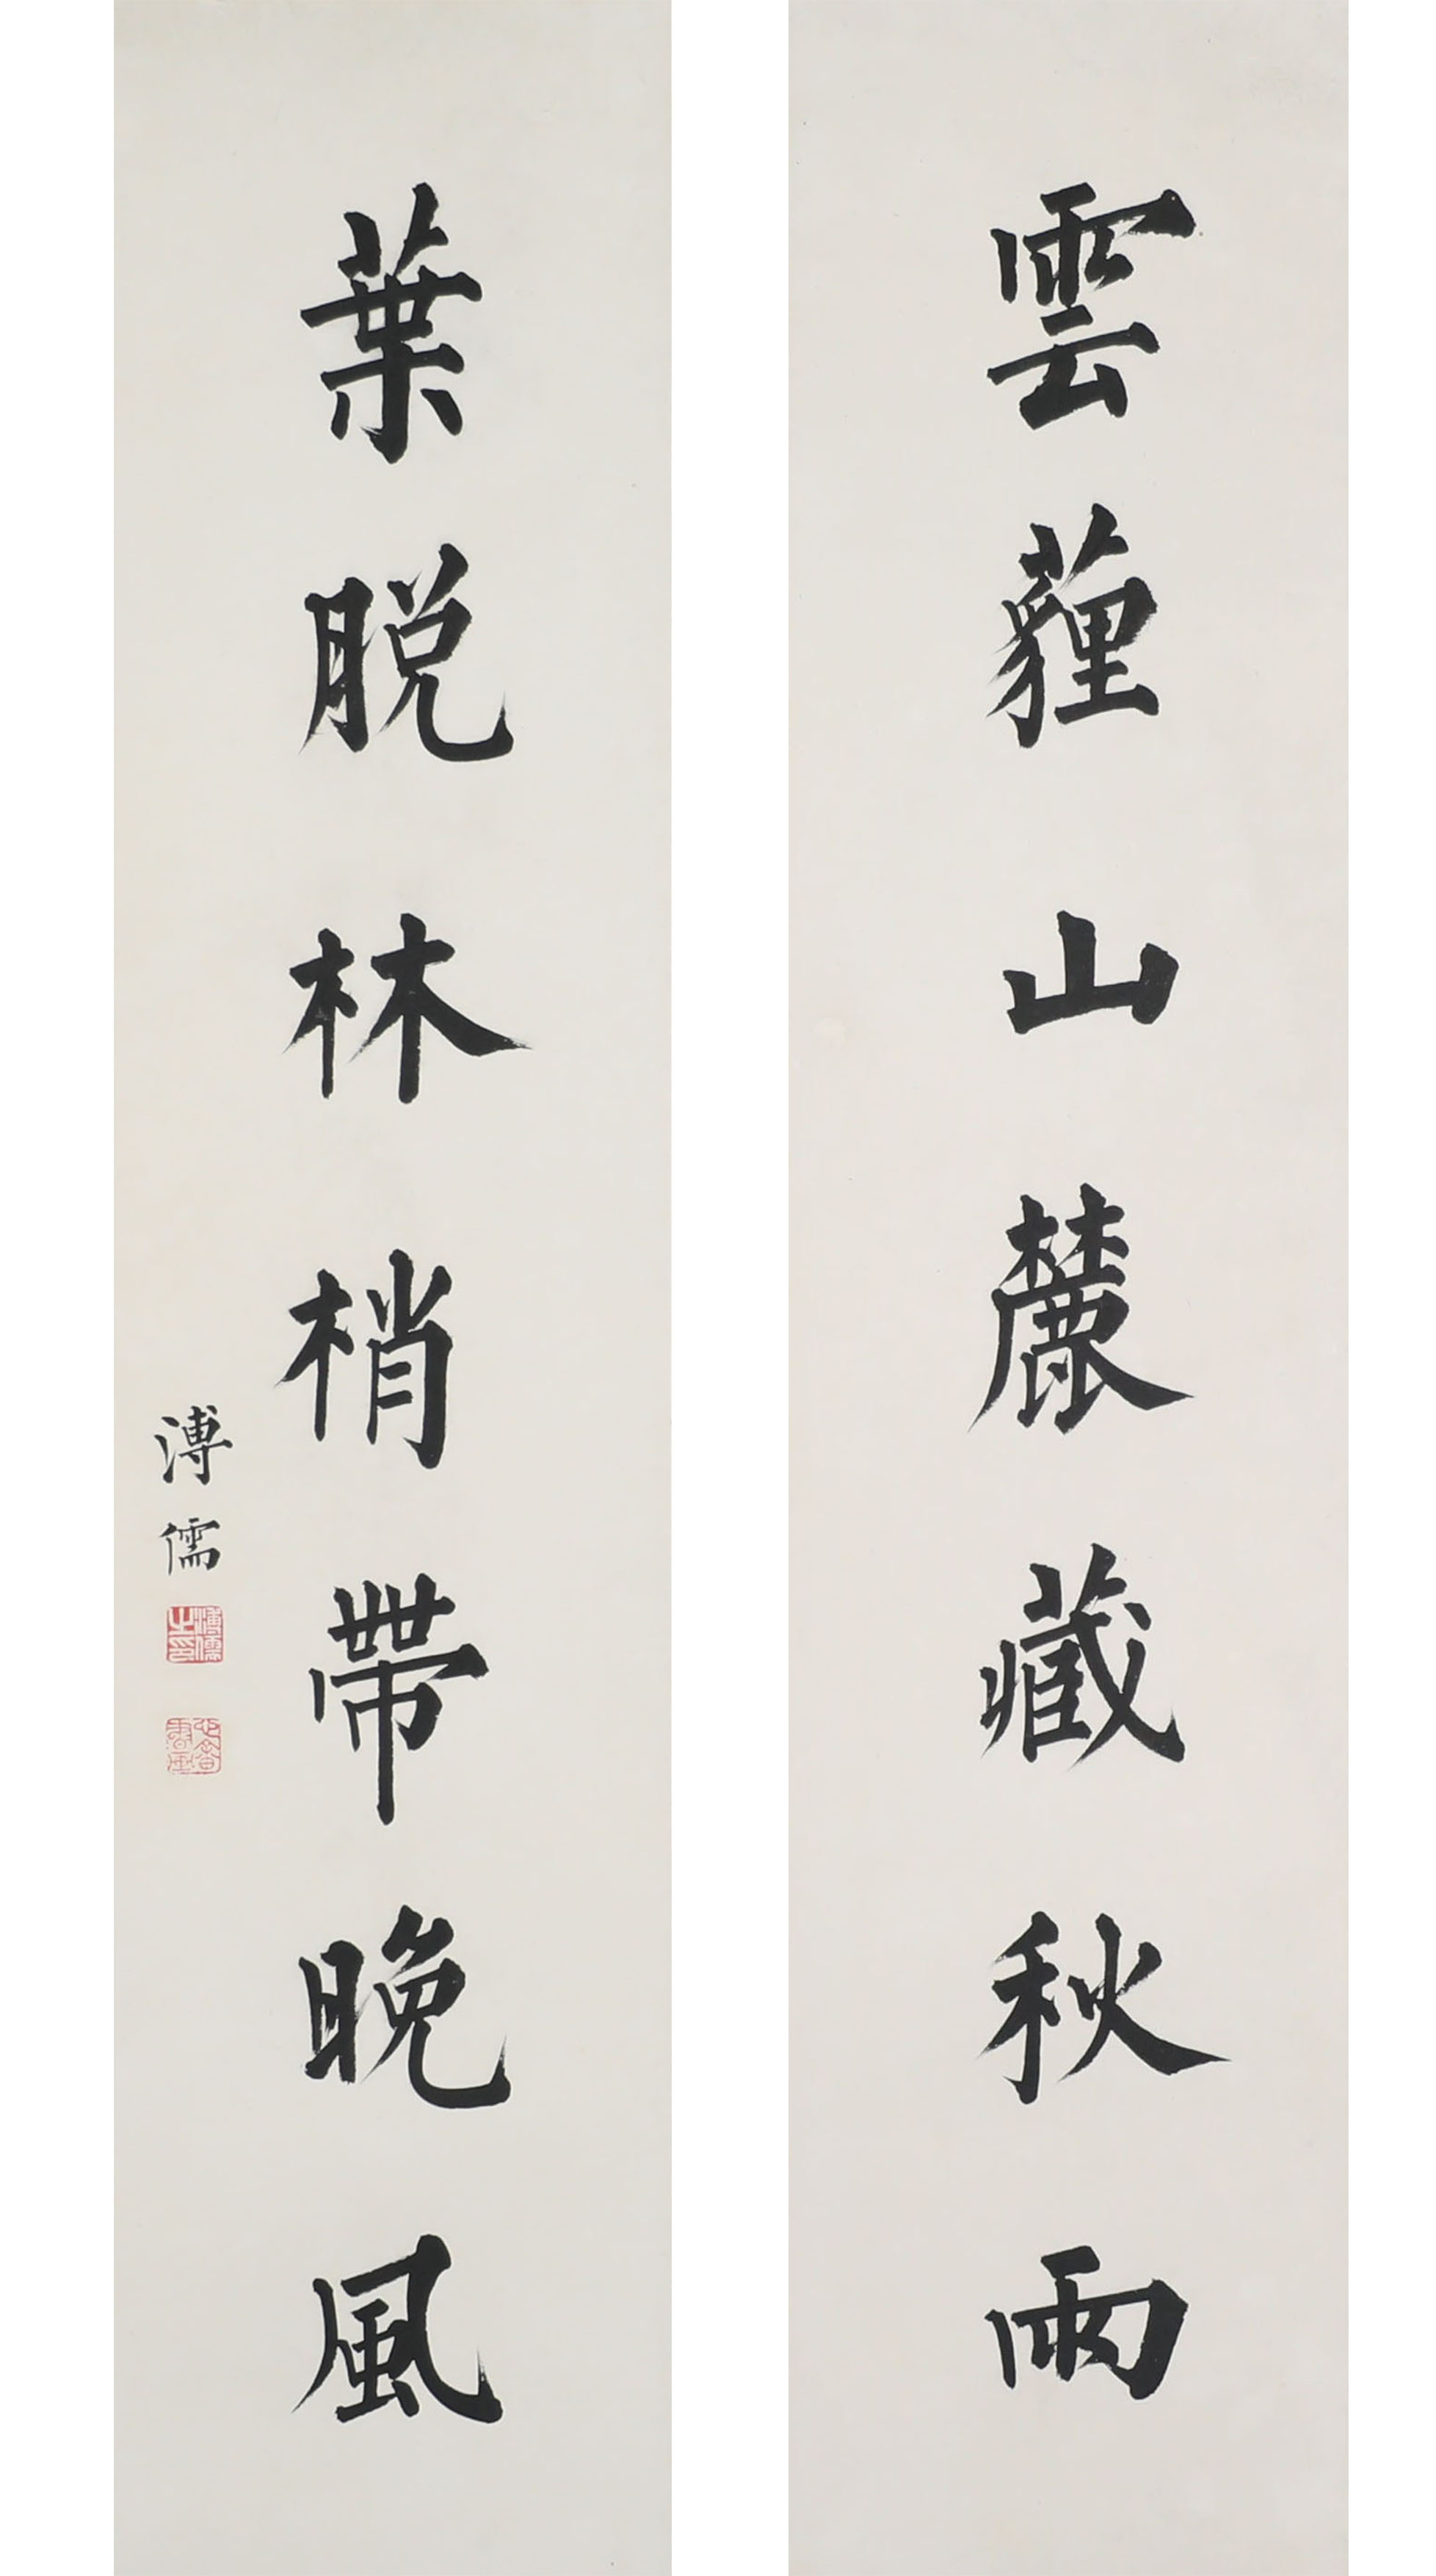 雲薶山麓藏秋雨
葉脱林梢帶晚風
溥儒
溥儒之印